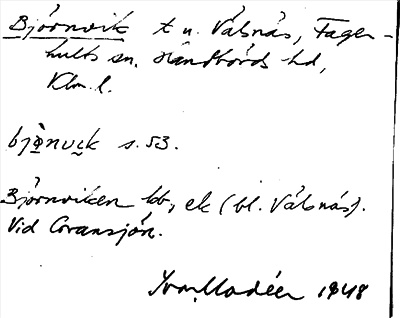 Björnvik t u. Välsnäs, Fager-
hults sn. Handbörds hd,
Klm. l.
bjö̀nvi̭k s. 53.
Björnviken bb, ek (bl. Välsnäs).
Vid Göransjön.
Ivar Modéer 1948